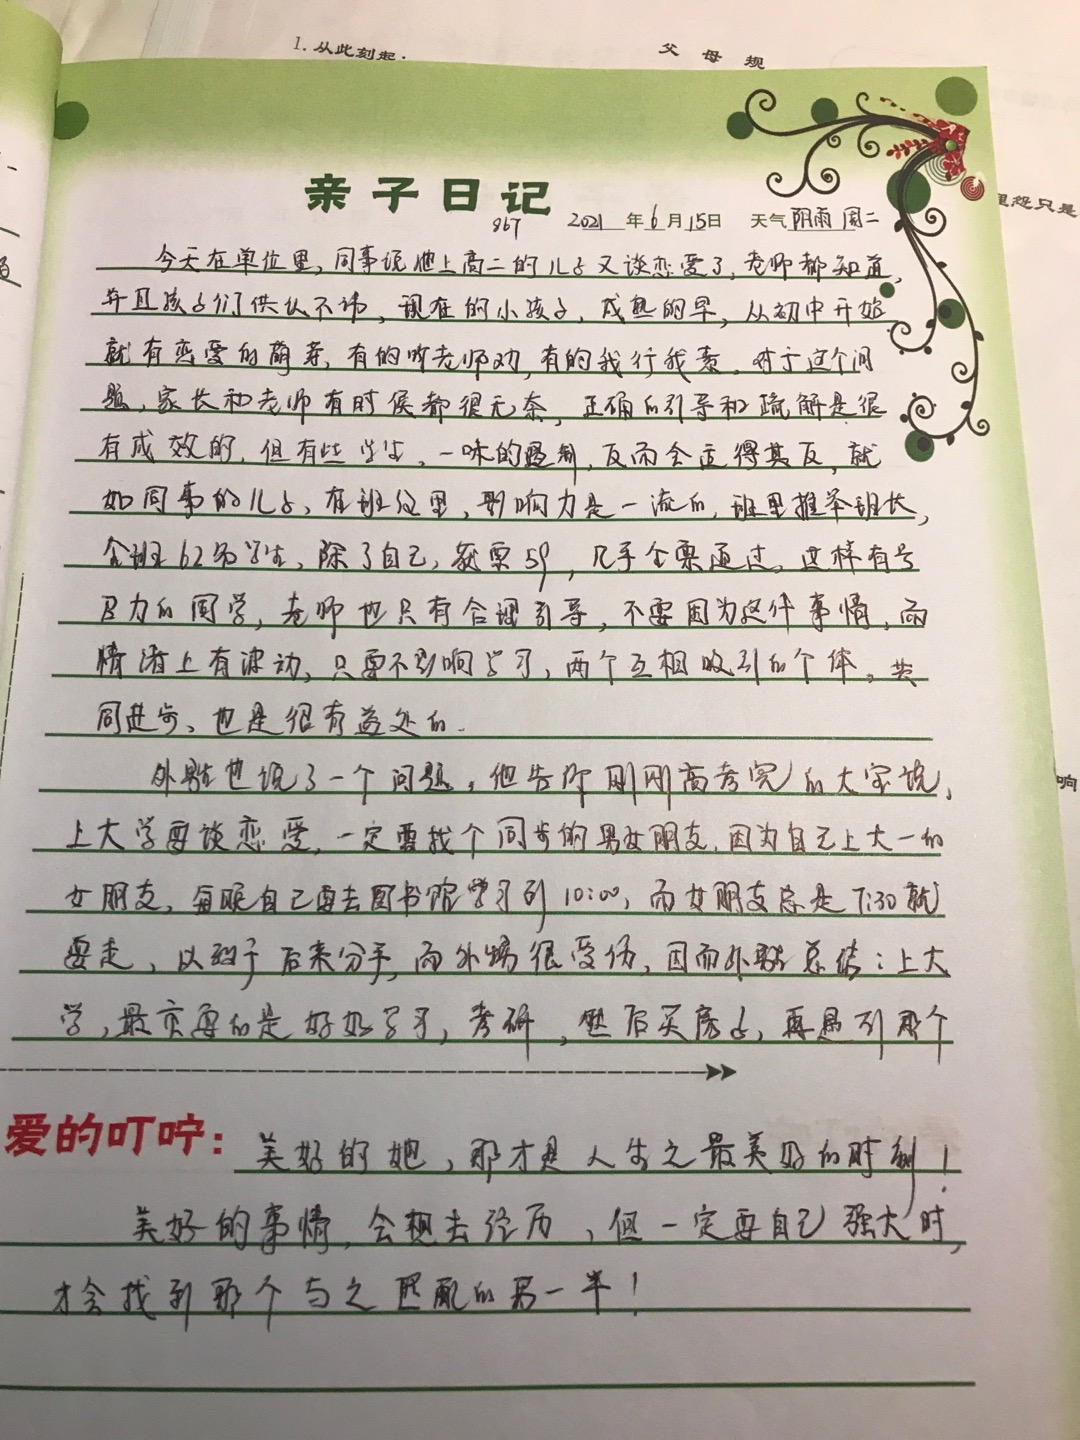 1. 从此刻起：
父 母 规
亲子日记
967
2021 年 6 月 15 日 天气 阴雨 周二
今天在单位里，同事说他上高二的儿子又谈恋爱了，老师都知道，
并且孩子们供认不讳，现在的小孩子，成熟的早，从初中开始
就有恋爱的萌芽，有的听老师劝，有的我行我素。对于这个问
题，家长和老师有时候都很无奈，正确的引导和疏解是很
有成效的，但有些学生，一味的强制，反而会适得其反，就
如同事的儿子，在班级里，影响力是一流的，班里推举班长，
全班62名学生，除了自己，获票59，几乎全票通过，这样有号
召力的同学，老师也只有合理引导，不要因为这件事情，而
情绪上有波动，只要不影响学习，两个互相吸引的个体，共
同进步，也是很有益处的。
外甥也说了一个问题，他告诉刚刚高考完的大宝说，
上大学要谈恋爱，一定要找个同步的男女朋友，因为自己上大一的
女朋友，每晚自己要去图书馆学习到10:00，而女朋友总是7:30就
要走，以致于后来分手，而外甥很受伤，因而外甥总结：上大
学，最重要的是好好学习，考研，然后买房子，再遇到那个
爱的叮咛：
美好的她，那才是人生之最美好的时刻！
美好的事情，会想去经历，但一定要自己强大时，
才会找到那个与之匹配的另一半！
里怨只是
响